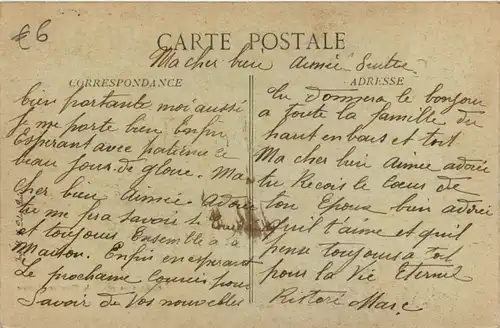 £6
CARTE POSTALE
Ma cher bien aimée Suite.
CORRESPONDANCE
bien portante moi aussi
je me porte bien Enfin
Esperant avec patience le
beau jour de gloire. Ma
cher bien aimée adorée
tu me fra savoir si
et toujours Ensemble a la
Maison. Enfin en esperant
Le prochaine Courrier pour
Savoir de Vos nouvelles
ADRESSE
Tu donnera le bonjour
a toute la famille du
haut en bas et toit
Ma cher bien aimée adorée
tu Recois le Cœus de
ton Epoux bien adoré
qu'il t'aime et qu'il
pense toujours a toi
pour la Vie Eternel
Ristori Marc